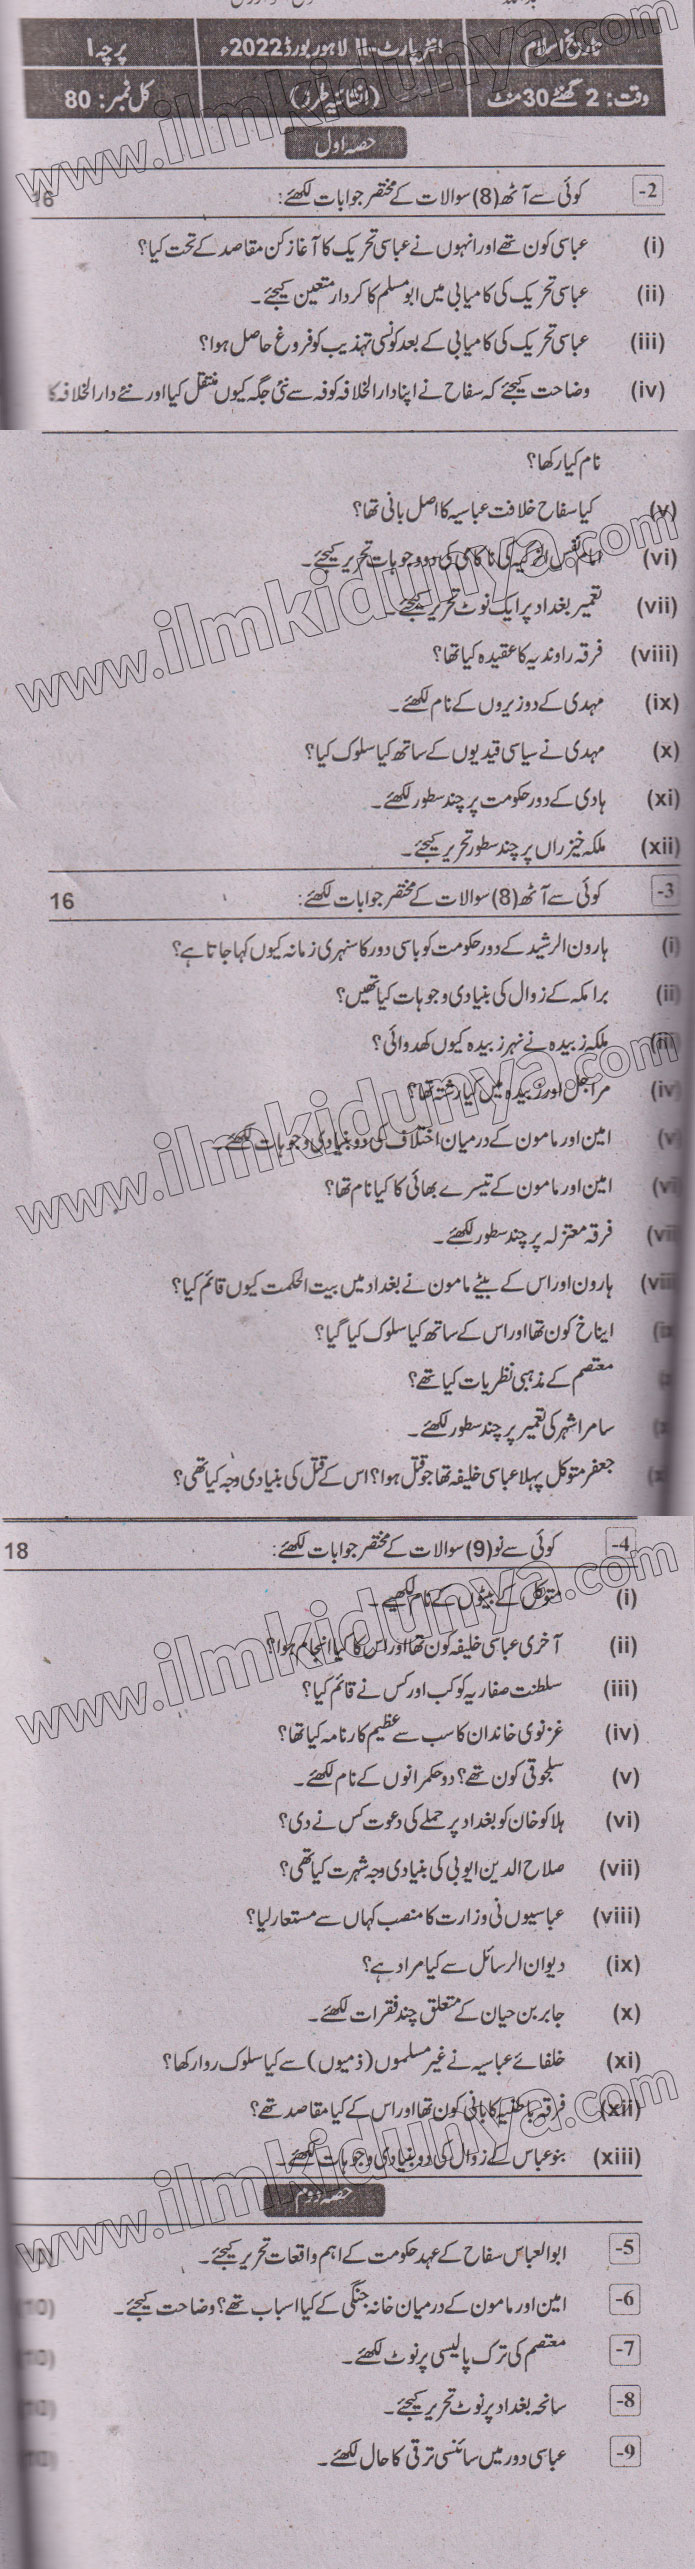 تاریخ اسلام انٹر پارٹ-II لاہور بورڈ 2022ء پرچہ I
وقت: 2 گھنٹے 30 منٹ (انشائیہ طرز) کل نمبر: 80
حصہ اول
2- کوئی سے آٹھ (8) سوالات کے مختصر جوابات لکھئے: 16
(i) عباسی کون تھے اور انہوں نے عباسی تحریک کا آغاز کن مقاصد کے تحت کیا؟
(ii) عباسی تحریک کی کامیابی میں ابو مسلم کا کردار متعین کیجئے۔
(iii) عباسی تحریک کی کامیابی کے بعد کونسی تہذیب کو فروغ حاصل ہوا؟
(iv) وضاحت کیجئے کہ سفاح نے اپنا دارالخلافہ کوفہ سے نئی جگہ کیوں منتقل کیا اور نئے دارالخلافہ کا
نام کیا رکھا؟
(v) کیا سفاح خلافت عباسیہ کا اصل بانی تھا؟
(vi) امام نفس الزکیہ کی ناکامی کی دو وجوہات تحریر کیجئے۔
(vii) تعمیر بغداد پر ایک نوٹ تحریر کیجئے۔
(viii) فرقہ راوندیہ کا عقیدہ کیا تھا؟
(ix) مہدی کے دو وزیروں کے نام لکھئے۔
(x) مہدی نے سیاسی قیدیوں کے ساتھ کیا سلوک کیا؟
(xi) ہادی کے دور حکومت پر چند سطور لکھئے۔
(xii) ملکہ خیزراں پر چند سطور تحریر کیجئے۔
3- کوئی سے آٹھ (8) سوالات کے مختصر جوابات لکھئے: 16
(i) ہارون الرشید کے دور حکومت کو باسی دور کا سنہری زمانہ کیوں کہا جاتا ہے؟
(ii) برامکہ کے زوال کی بنیادی وجوہات کیا تھیں؟
(iii) ملکہ زبیدہ نے نہر زبیدہ کیوں کھدوائی؟
(iv) مراجل اور زبیدہ میں کیا رشتہ تھا؟
(v) امین اور مامون کے درمیان اختلاف کی دو بنیادی وجوہات لکھئے۔
(vi) امین اور مامون کے تیسرے بھائی کا کیا نام تھا؟
(vii) فرقہ معتزلہ پر چند سطور لکھئے۔
(viii) ہارون اور اس کے بیٹے مامون نے بغداد میں بیت الحکمت کیوں قائم کیا؟
ایتاخ کون تھا اور اس کے ساتھ کیا سلوک کیا گیا؟
معتصم کے مذہبی نظریات کیا تھے؟
سامرا شہر کی تعمیر پر چند سطور لکھئے۔
جعفر متوکل پہلا عباسی خلیفہ تھا جو قتل ہوا؟ اس کے قتل کی بنیادی وجہ کیا تھی؟
4- کوئی سے نو (9) سوالات کے مختصر جوابات لکھئے: 18
(i) متوکل کے بیٹوں کے نام لکھیے۔
(ii) آخری عباسی خلیفہ کون تھا اور اس کا کیا انجام ہوا؟
(iii) سلطنت صفاریہ کو کب اور کس نے قائم کیا؟
(iv) غزنوی خاندان کا سب سے عظیم کارنامہ کیا تھا؟
(v) سلجوقی کون تھے؟ دو حکمرانوں کے نام لکھئے۔
(vi) ہلاکو خان کو بغداد پر حملے کی دعوت کس نے دی؟
(vii) صلاح الدین ایوبی کی بنیادی وجہ شہرت کیا تھی؟
(viii) عباسیوں نی وزارت کا منصب کہاں سے مستعار لیا؟
(ix) دیوان الرسائل سے کیا مراد ہے؟
(x) جابر بن حیان کے متعلق چند فقرات لکھئے۔
(xi) خلفائے عباسیہ نے غیر مسلموں (ذمیوں) سے کیا سلوک روا رکھا؟
(xii) فرقہ باطنیہ کا بانی کون تھا اور اس کے کیا مقاصد تھے؟
(xiii) بنو عباس کے زوال کی دو بنیادی وجوہات لکھئے۔
حصہ دوم
5- ابو العباس سفاح کے عہد حکومت کے اہم واقعات تحریر کیجئے۔
6- امین اور مامون کے درمیان خانہ جنگی کے کیا اسباب تھے؟ وضاحت کیجئے۔ (10)
7- معتصم کی ترک پالیسی پر نوٹ لکھئے۔ (10)
8- سانحہ بغداد پر نوٹ تحریر کیجئے۔ (10)
9- عباسی دور میں سائنسی ترقی کا حال لکھئے۔ (10)
www.ilmkidunya.com
www.ilmkidunya.com
www.ilmkidunya.com
www.ilmkidunya.com
www.ilmkidunya.com